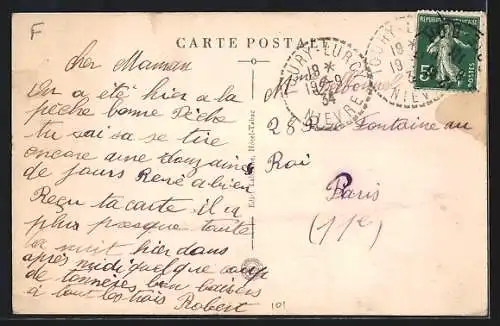 F
CARTE POSTALE
cher Maman
On a été hier a la
pêche bonne Pêche
tu sai sa se tire
encore une douzaine
de jours René a bien
Reçu ta carte il a
plus presque toute
la nuit hier dans
après midi quelque coup
de tonneres bon baisers
à tout les trois Robert
101
OUROUX
18 *
NIÈVRE
34
18 *
NIÈVRE
REPUBLIQUE FRANÇAISE
5c
POSTES
Mme
28 Rue Fontaine au
Roi
Paris
(11e)
Hôtel-Tabac